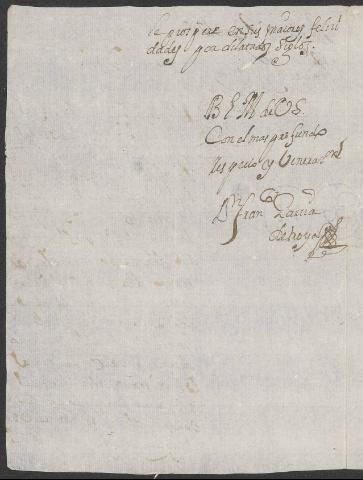 le prospere en sus maiores felici
dades por dilatados siglos.
B L M de VS.
Con el mas profundo
Respecto y Veneraon
Dn Franco Garcia
de hoyos